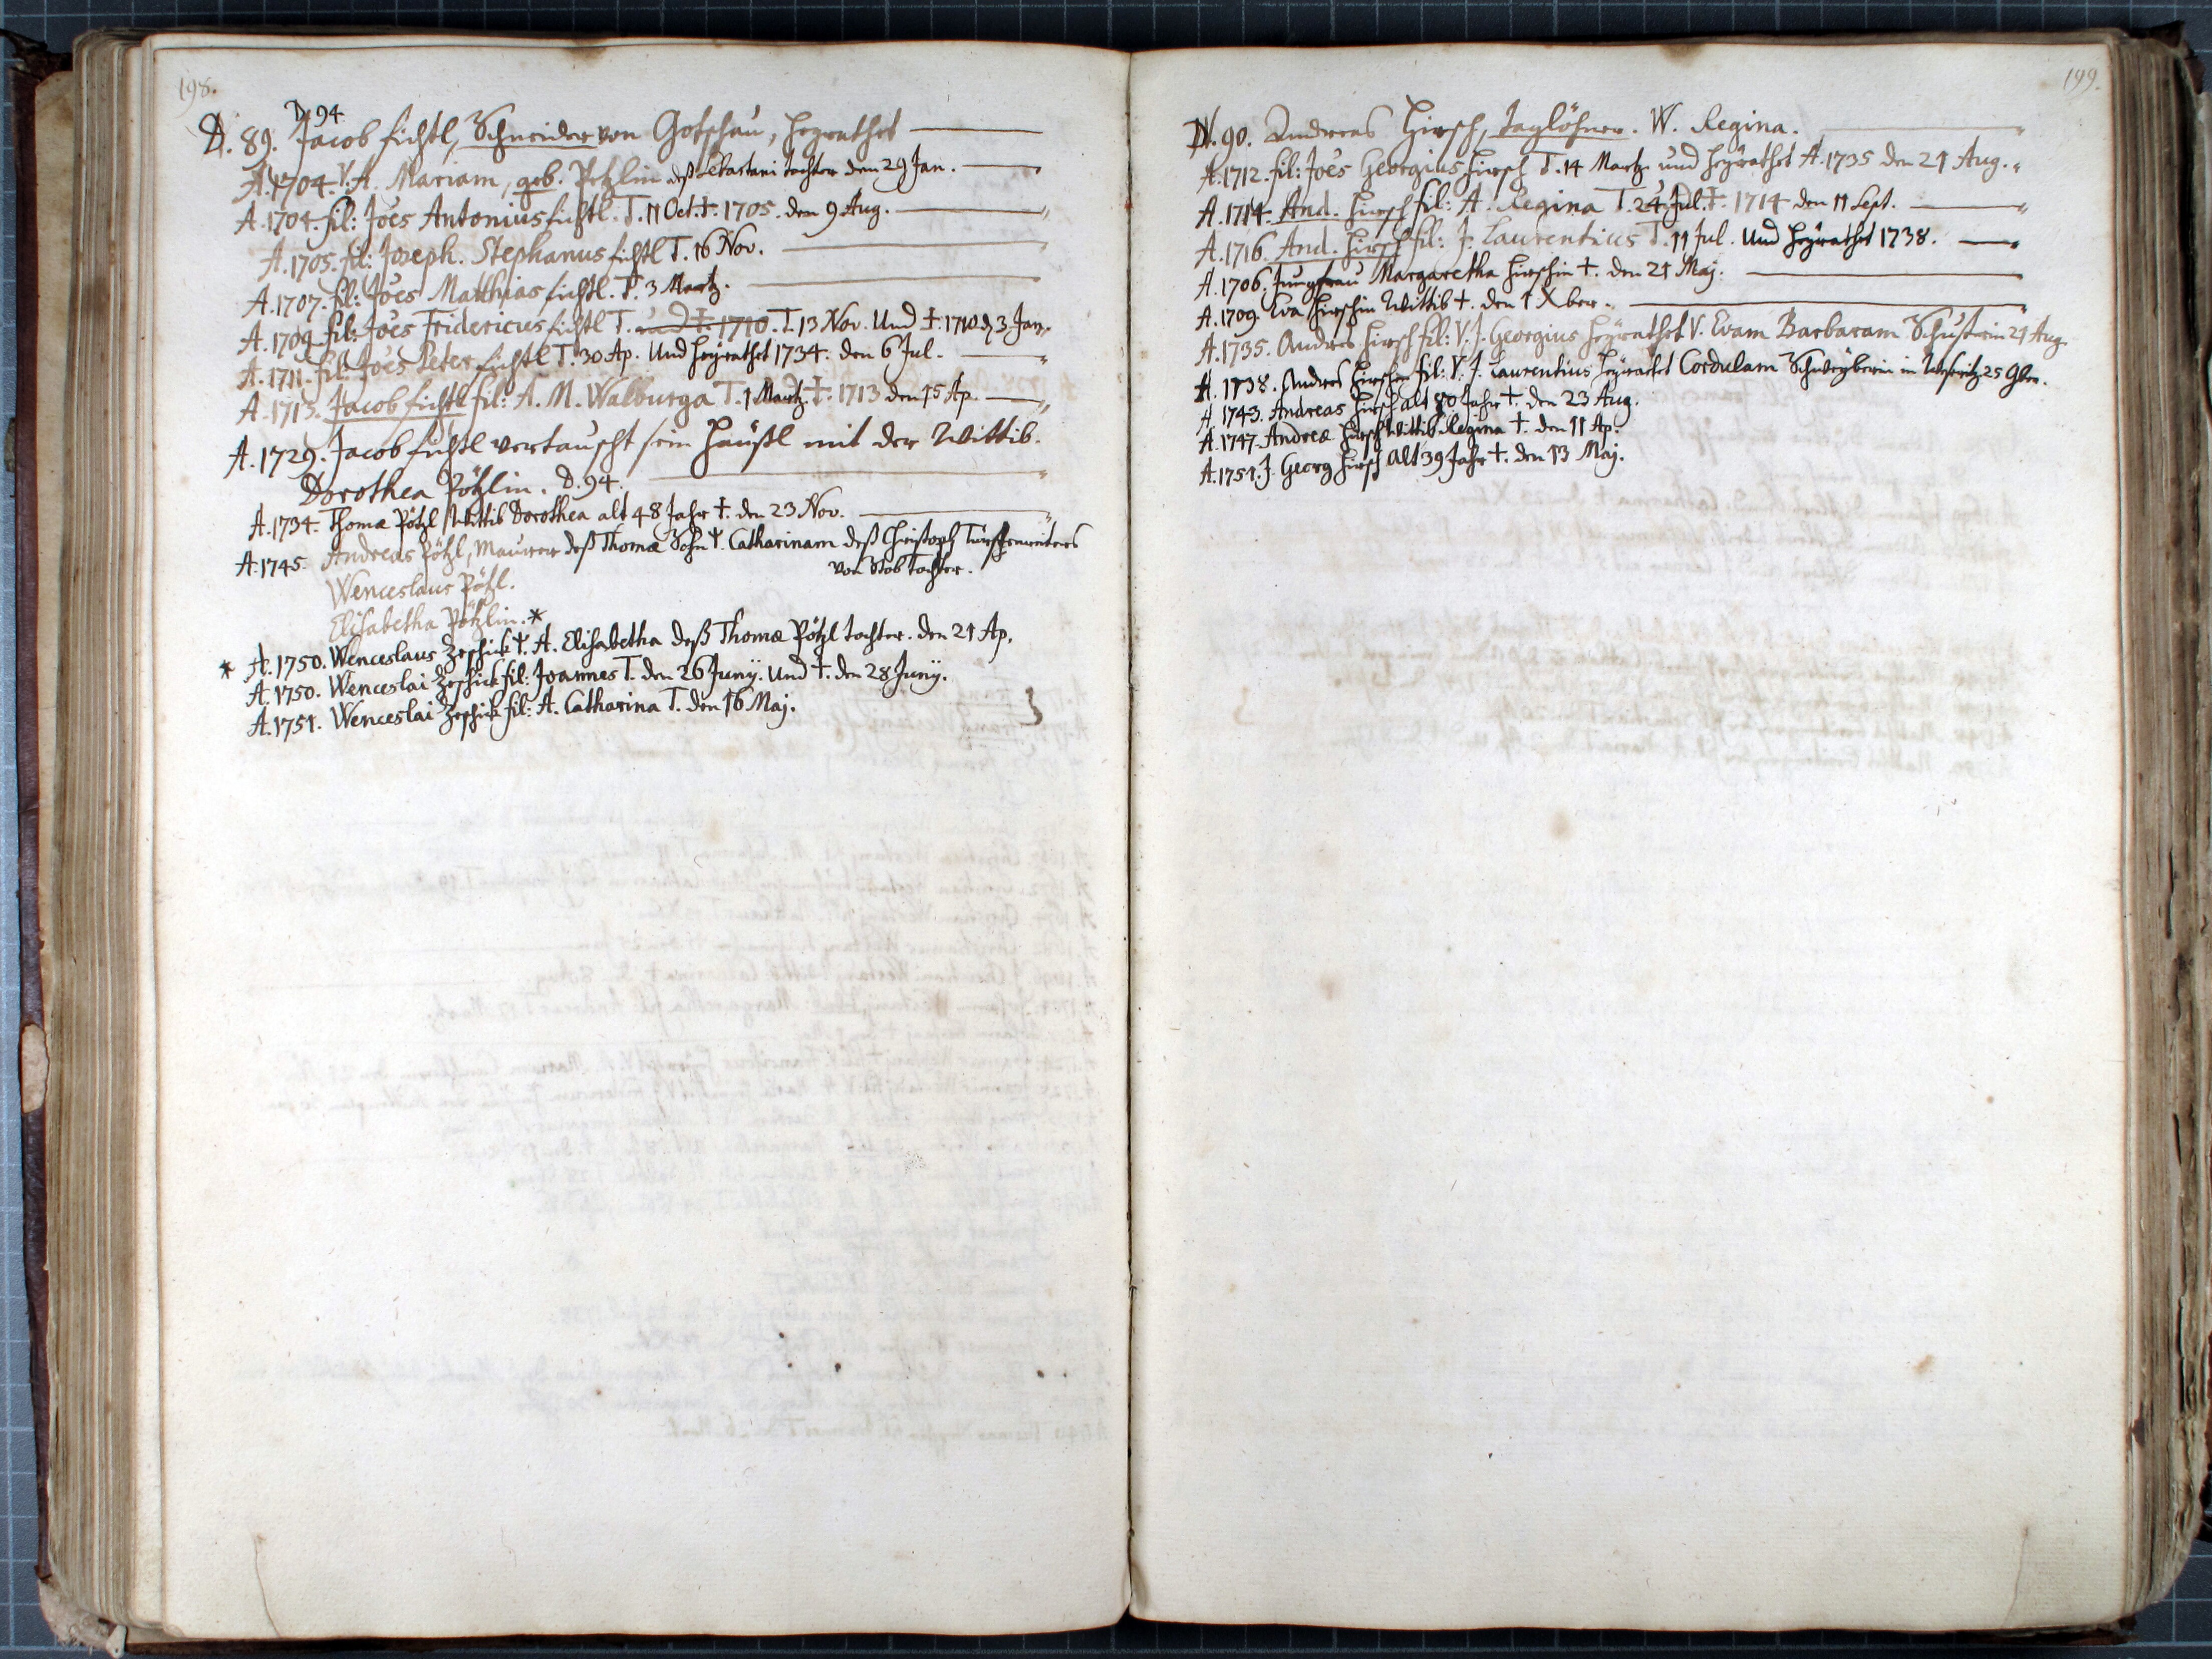 198.
D. 94.
D. 89. Jacob fichtl, Schneider von Gotschau, heyrathet
A. 1704. V. A. Mariam, geb. Petzlin deß Sebastiani tochter den 29 Jan.
A. 1704. fil: Joës Antonius fichtl. T. 11 Oct. †. 1705. den 9 Aug.
A. 1705. fil: Joseph. Stephanus fichtl T. 16 Nov.
A. 1707. fil: Joës Matthias fichtl. T. 3 Martz.
A. 1709. fil: Joës Fridericus fichtl T. und †. 1710. T. 13 Nov. Und †. 1710. d. 3 Jan.
A. 1711. fil: Joës Peter fichtl T. 30 Ap. Und heyrathet 1734. den 6 Jul.
A. 1713. Jacob fichtl fil: A. M. Walburga T. 1 Martz. †. 1713 den 15 Ap.
A. 1729. Jacob fichtl vertauscht sein häußl mit der Wittib.
Dorothea Pötzlin. D. 94.
A. 1734. Thomæ Pötzl Wittib Dorothea alt 48 Jahr †. den 23 Nov.
A. 1745. Andreas Pötzl, Maurer deß Thomæ Sohn Catharinam deß Christoph
von tochter.
Wenceslaus Pötzl.
Elisabetha Pötzlin. *
* A. 1750. Wenceslaus Zeschick A. Elisabetha deß Thomæ Pötzl tochter. den 21 Ap.
A. 1750. Wenceslai Zeschick fil: Joannes T. den 26 Junÿ. Und †. den 28 Junÿ.
A. 1751. Wenceslai Zeschick fil: A. Catharina T. den 16 Maj.
199.
N. 90. Andreas Hirsch, taglöhner. W. Regina.
A. 1712. fil: Joës Georgius hirsch T. 14 Martz. und heyrathet A. 1735 den 21 Aug.
A. 1714. And. hirsch fil: A. Regina T. 24 Jul. †. 1714 den 11 Sept.
A. 1716. And. hirsch fil: J. Laurentius T. 11 Jul. Und heyrathet 1738.
A. 1706. Jungfrau Margaretha hirschin †. den 21 Maj.
A. 1709. Eva hirschin Wittib †. den 1 Xber.
A. 1735. Andres hirsch fil: V. J. Georgius heyrathet V. Evam Barbaram Schusterin 21 Aug.
A. 1738. Andres hirschen fil: V. J. Laurentius heyrathet Cordulam in 25 9ber.
A. 1743. Andreas hirsch alt 80 Jahr †. den 23 Aug.
A. 1747. Andreæ hirsch Wittib Regina †. den 11 Ap.
A. 1751. J. Georg hirsch alt 39 Jahr †. den 13 Maj.